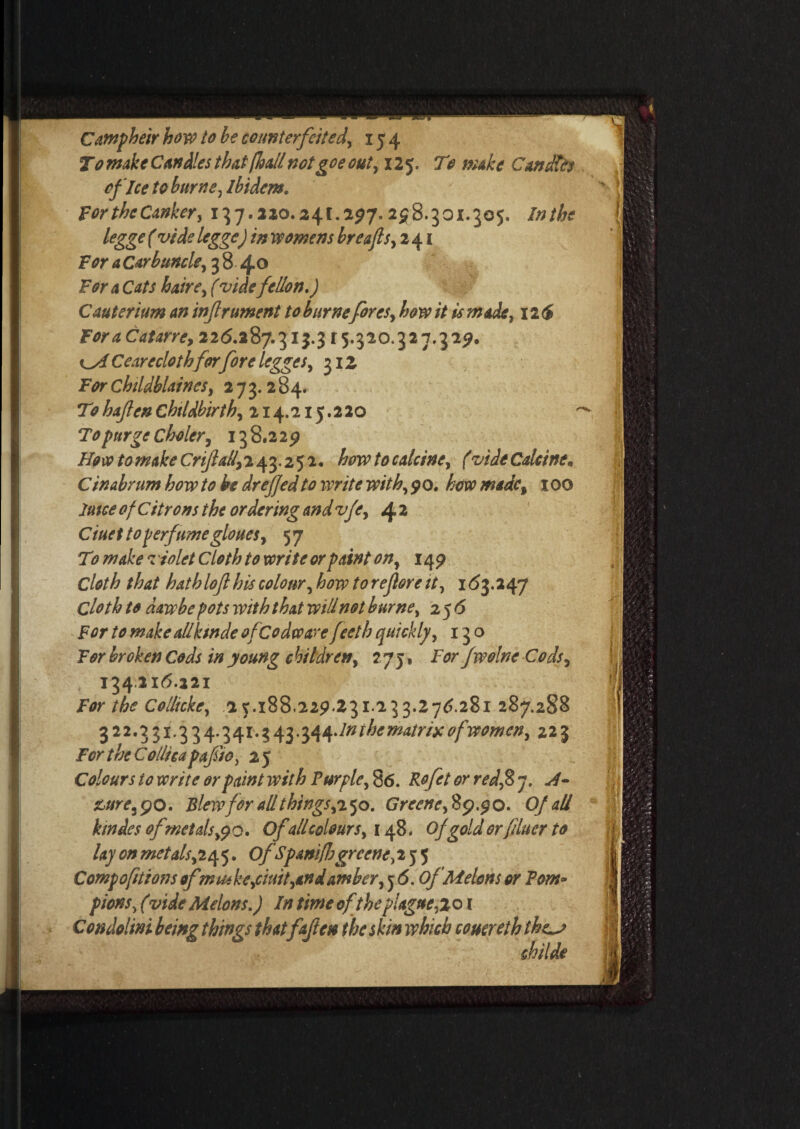 Campheir how to be counterfeited, 154
To make Candles that ſhall not goe out, 125. To make Candles
of Ice to burne, Ibidem.
For the Canker, 137.220.241.297.298.301.305. In the
legge (vide legge) in womens breaſts, 241
For a Carbuncle, 38 40
For a Cats haire, (vide fellon.)
Cauterium an inſtrument to burne ſores, how it is made, 126
For a Catarre, 226.287.313.315.320.327.329.
A Cearecloth for ſore legges, 312
For Childblaines, 273.284.
To haſten Childbirth, 214.215.220
To purge Choler, 138.229
How to make Criſtall, 243.252. how to calcine, (vide Calcine.
Cinabrum how to be dreſſed to write with, 90. how made, 100
Iuice of Citrons the ordering and vſe, 42
Ciuet to perfume gloues, 57
To make violet Cloth to write or paint on, 149
Cloth that hath loſt his colour, how to reſtore it, 163.247
Cloth to dawbe pots with that will not burne, 256
For to make all kinde of Codware ſeeth quickly, 130
For broken Cods in young children, 275, For ſwolne Cods,
134.216.221
For the Collicke, 25.188.229.231.233.276.281 287.288
322.331.334.341.343.344. In the matrix of women, 223
For the Collica paſsio, 25
Colours to write or paint with Purple, 86. Roſet or red, 87. A-
zure, 90. Blew for all things, 250. Greene, 89.90. Of all
kindes of metals, 90. Of all colours, 148. Of gold or ſiluer to
lay on metals, 245. Of Spaniſh greene, 255
Compoſitions of muske, ciuit, and amber, 56. Of Melons or Pom-
pions, (vide Melons.) In time of the plague, 201
Condolini being things that faſten the skin which couereth the
childe